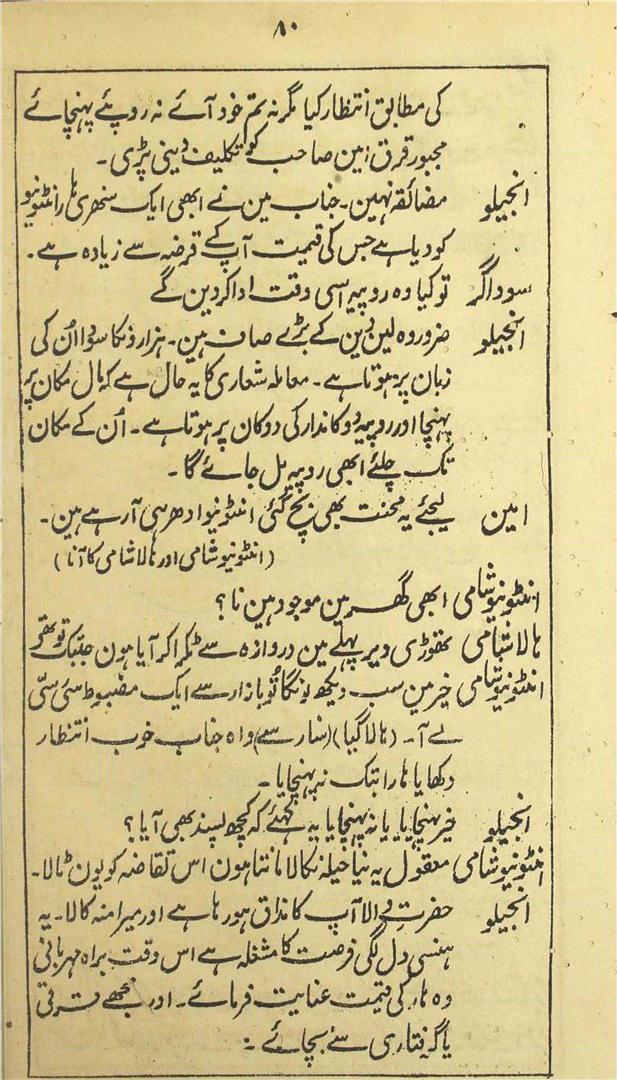 ۸۰
کی مطابق انتظار کیا مگر نہ تم خود آئے نہ روپئے پہنچائے
مجبور قرق امین صاحب کو تکلیف دینی پڑی۔
انجیلو مضائقہ نہین۔ جناب مین نے ابھی ایک سنھری ہار انٹونیو
کو دیا ہے جس کی قیمت آپ کے قرضہ سے زیادہ ہے۔
سوداگر تو کیا وہ روپیہ اسی وقت ادا کردین گے
انجیلو ضرور وہ لین دین کے بڑے صاف ہین۔ ہزارونکا سودا اُن کی
زبان پر ہوتا ہے۔ معاملہ شعاری کا یہ حال ہے کہ مال مکان پر
پہنچا اور روپیہ دوکاندار کی دوکان پر ہوتا ہے۔ اُن کے مکان
تک چلئے ابھی روپیہ مل جائے گا۔
امین لیجئے یہ محنت بھی بچ گئی انٹونیو ادھر ہی آرہے ہین۔
(انٹونیو شامی اور ہالا شامی کا آنا)
انٹونیو شامی ابھی گھر مین موجود ہین نا؟
ہالا شامی تھوڑی دیر پہلے مین دروازہ سے ٹکرا کر آیا ہون جبتک تو تھے
انٹونیو شامی خیر مین سب دیکھ لونگا تُو بازار سے ایک مضبوط سی رسّی
لے آ۔ (ہالا گیا) (سنار سے) واہ جناب خوب انتظار
دکھایا ہار ابتک نہ پہنچایا۔
انجیلو خیر پہنچایا یا نہ پہنچایا یہ کہئے کہ کچھ پسند بھی آیا؟
انٹونیو شامی معقول یہ نیا حیلہ نکالا مانتا ہون اس تقاضہ کو یون ٹالا۔
انجیلو حضرتِ والا آپ کا مذاق ہورہا ہے اور میرا منہ کالا۔ یہ
ہنسی دل لگی فرصت کا مشغلہ ہے اس وقت براہ مہربانی
وہ ہار کی قیمت عنایت فرمائے۔ اور مجھے قرقی
یا گرفتاری سے بچائے۔